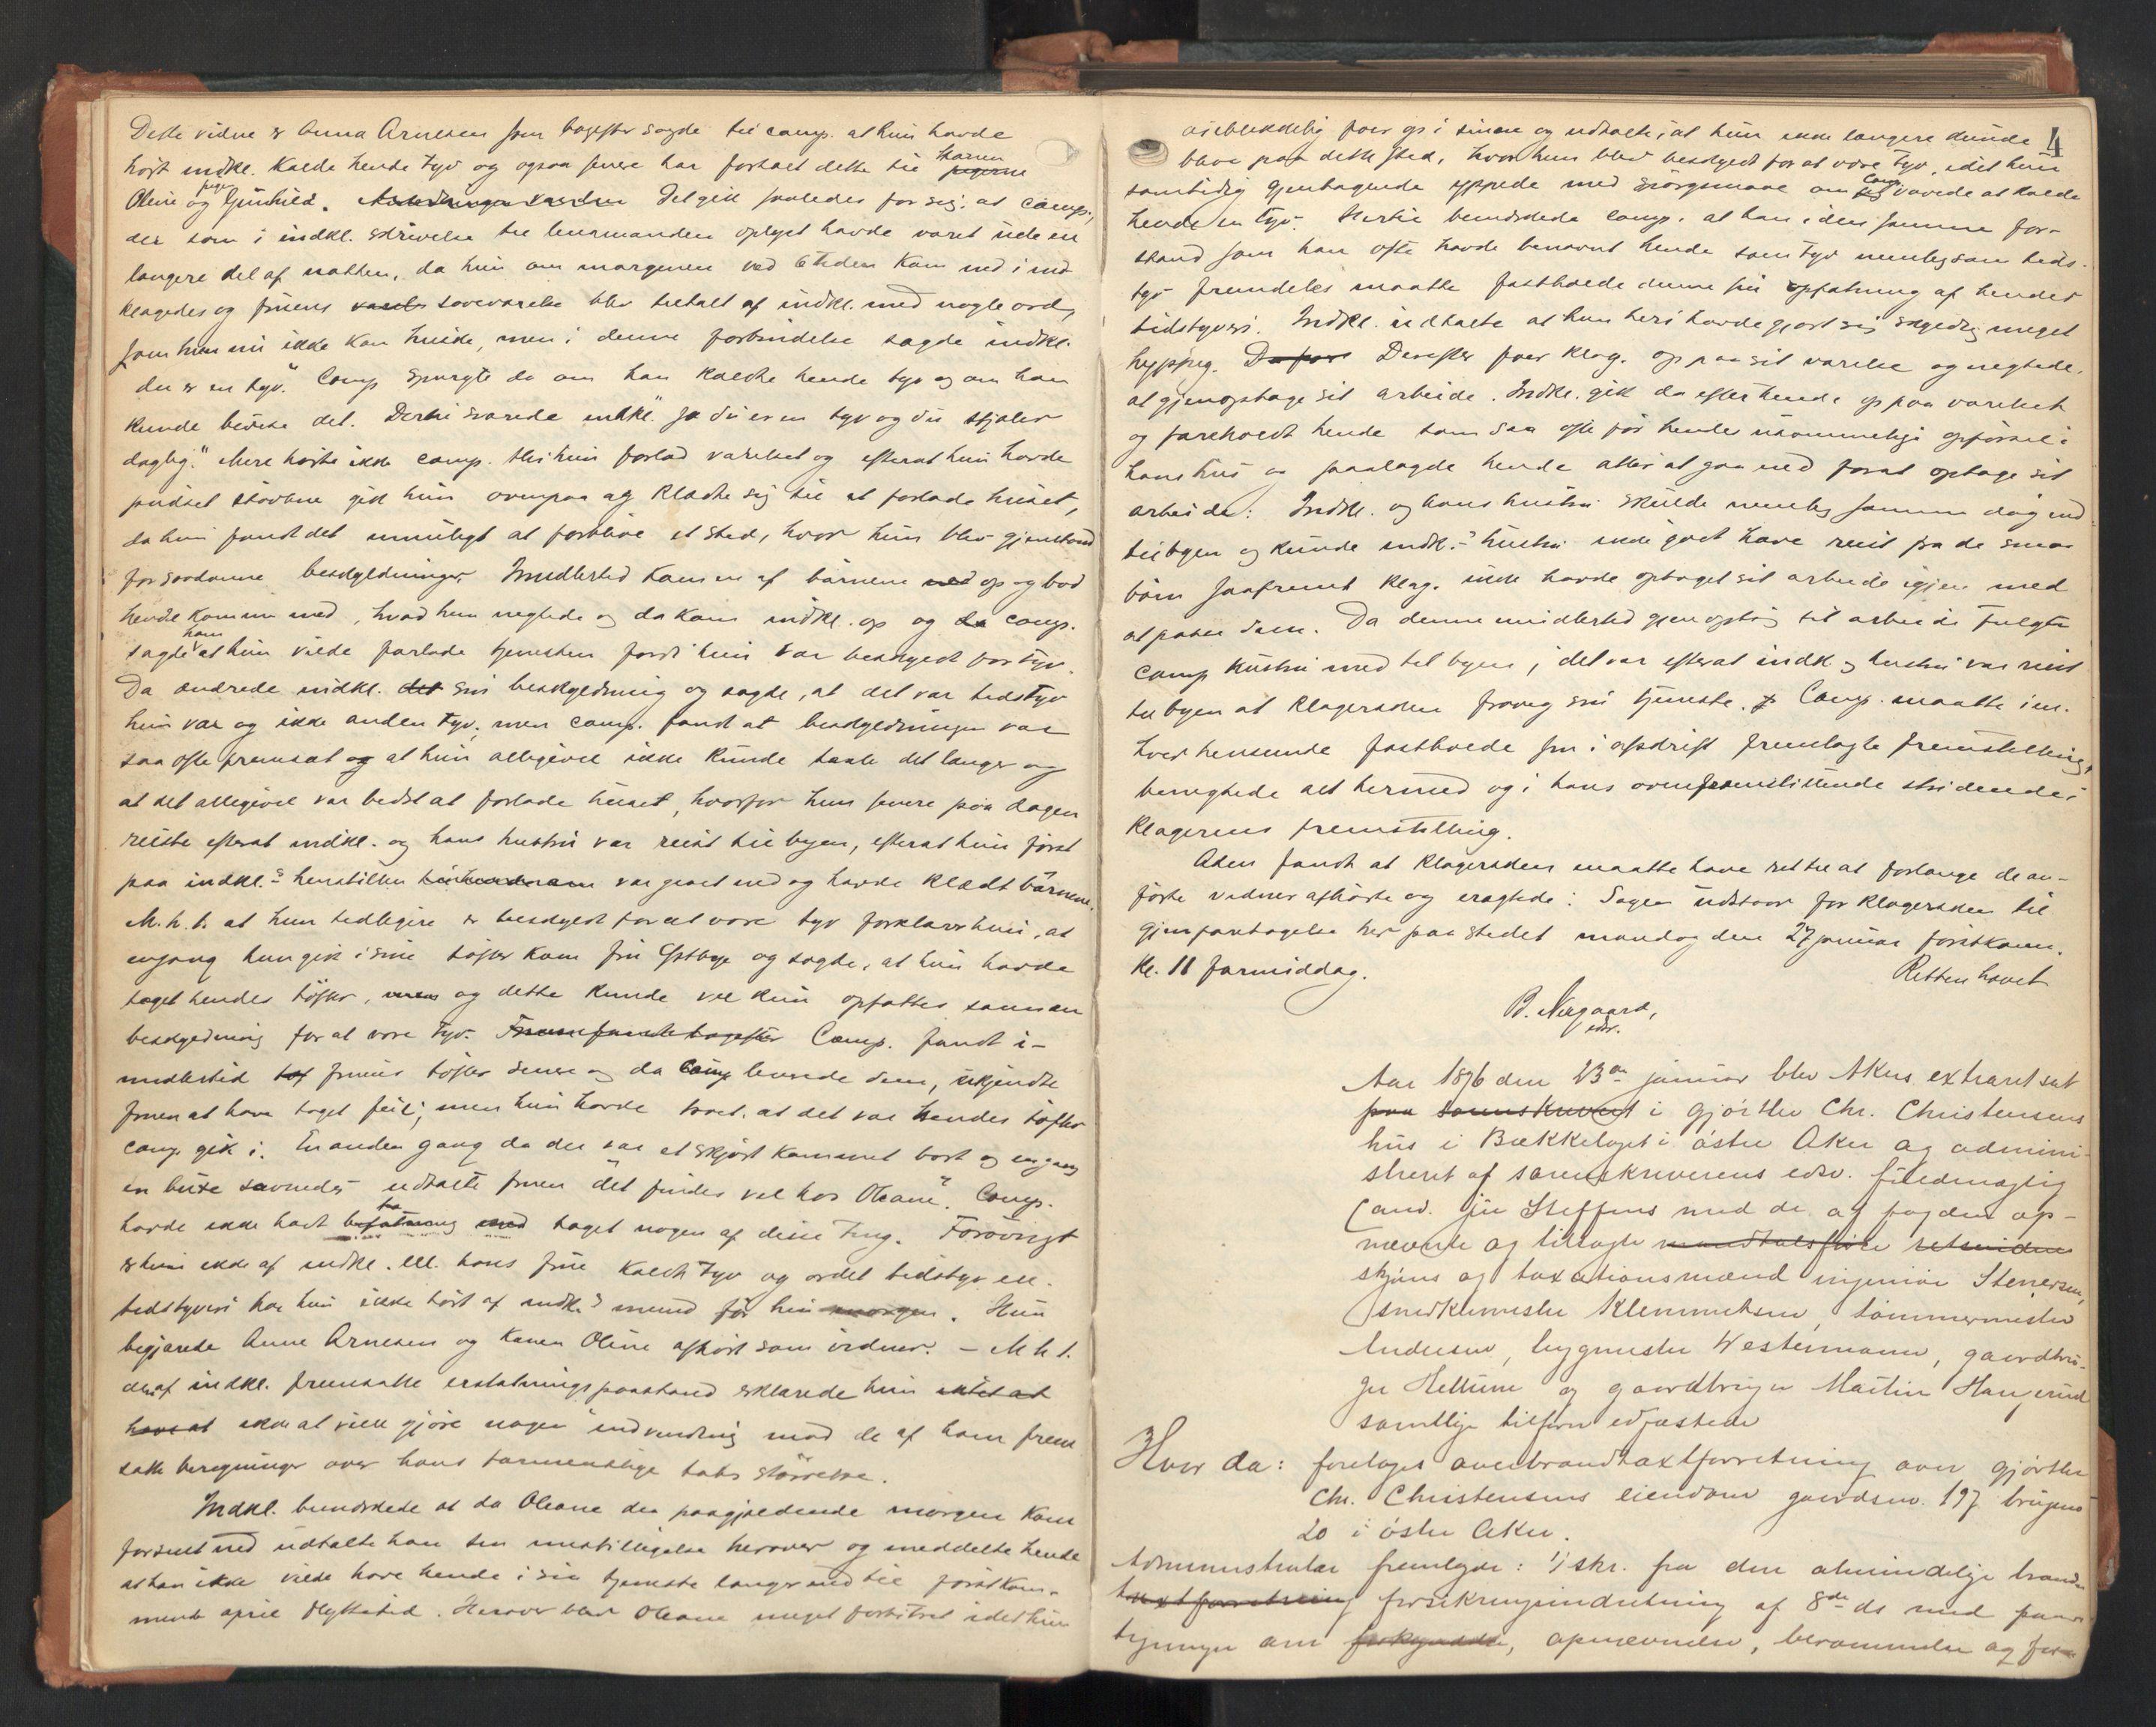 Dette vidne er Anna Arnesen som bagefter sagde til comp. at hun havde
hørt indkl. kalde hende tyv og ogsaa senere har fortalt dette til Karen
Oline og pige Gunhild. Det gik saaledes for sig, at comp.,
der som i indkl. skrivelse til lensmanden oplyst havde været ude en
længere del af natten, da hun om morgenen ved 6 tiden kom ned i ind-
klagedes og fruens soveværelse blev tiltalt af indkl. med nogle ord,
som hun nu ikke kan huske, men i denne forbindelse sagde indkl.
"du er en tyv". Comp spurgte da om han kaldte hende tyv og om han
kunde bevise det. Dertil svarede indkl. "Ja du er en tyv og du stjæler
daglig." Mere hørte ikke comp. thi hun forlod værelset og efterat hun havde
pudset støvlene gik hun ovenpaa og klædte sig til at forlade huset,
da hun fandt det umuligt at forblive et sted, hvor hun blev gjenstand
for saadanne beskyldninger. Imidlertid kom en af børnene op og bad
hende komme ned, hvad hun negtede og da kom indkl. op og comp.
sagde ham at hun vilde forlade tjenesten fordi hun var beskyldt for tyv.
Da ændrede indkl. sin beskyldning og sagde, at det var tidstyv
hun var og ikke anden tyv, men comp. fandt at beskyldningen var
saa ofte fremsat og at hun alligevel ikke kunde taale det længer og
at det alligevel var bedst at forlade huset, hvorfor hun senere paa dagen
reiste efterat indkl. og hans hustru var reist til byen, efterat hun først
paa indkl.s henstillen var gaaet ned og havde klædt børnene.
M. h. t. at hun tidligere er beskyldt for at være tyv forklarer hun, at
engang hun gik i sine tøfler kom fru Østbye og sagde, at hun havde
taget hendes tøfler, og dette kunde vel kun opfattes som en
beskyldning for at være tyv. Comp. fandt i-
midlertid fruens tøfler senere og da comp leverede dem, erkjendte
fruen at have taget feil; men hun havde troet, at det var hendes tøfler
comp gik i. En anden gang da der var et skjørt kommet bort og engang
en buxe savnedes udtalte fruen "det findes vel hos Oleane". Comp.
havde ikke havt taget nogen af disse ting. Forøvrigt
er hun ikke af indkl. ell. hans frue kaldt tyv og ordet tidstyv ell.
tidstyveri har hun ikke hørt af indkl.s mund før hin morgen. Hun
begjærede Anne Arnesen og Karen Oline afhørt som vidner. – M. h. t.
den af indkl. fremsatte erstatningspaastand erklærede hun
ikke at ville gjøre nogen indvending mod de af ham frem
satte beregninger over hans formentlige tabs størrelse.
Indkl. bemærkede at da Oleane den paagjældende morgen kom
forsent ned udtalte han sin misbilligelse herover og meddelte hende
at han ikke vilde have hende i sin tjeneste længer end til førstkom-
mende april flyttetid. Herover blev Oleane meget forbitret idet hun
4
øieblikkelig foer op i sinne og udtalte, at hun ikke længere kunde
blive paa dette sted, hvor hun blev beskyldt for at være tyv, idet hun
samtidig gjentagende yppede med spørgsmaal om Comp vovede at kalde
hende en tyv. Hertil bemærkede comp. at han i den samme for-
stand som han ofte havde benævnt hende som tyv nemlig som tids-
tyv fremdeles maatte fastholde denne sin opfatning af hendes
tidstyveri. Indkl. udtalte at hun heri havde gjort sig skyldig meget
hyppig. Derefter foer klag. op paa sit værelse og negtede
at gjenoptage sit arbeide. Indkl. gik da efter hende op paa værelset
og foreholdt hende som saa ofte før hendes usømmelige opførsel i
hans hus og paalagde hende atter at gaa ned forat optage sit
arbeide: Indkl. og hans hustru skulde nemlig samme dag ind
til byen og kunde indkl.s hustru ikke godt have reist fra de smaa
børn saafremt klag. ikke havde optaget sit arbeide igjen med
at passe dem. Da denne imidlertid gjenoptog sit arbeide fulgte
comp hustru med til byen, det var efterat indkl og hustru var reist
til byen at klagersken fraveg sin tjeneste. Comp. maatte i en-
hver henseende fastholde sin i afskrift fremlagte fremstilling,
benegtede alt hermed og i hans ovenfremstillende stridende i
klagerens fremstilling.
Adm fandt at klagersken maatte have ret til at forlange de an-
førte vidner afhørte og eragtede: Sagen udstaar for klagersken til
gjenforetagelse her paa stedet mandag den 27 januar førstkomm.
kl. 11 formiddag.
Retten hævet
B. Nergaard,
edsv.
Aar 1896 den 23de januar blev Akers extraret sat
paa sorenskriveri i gjørtler Chr. Christensens
hus i Bækkelaget i østre Aker og admini-
streret af sorenskriverens edsv. fuldmægtig
Cand. jur Steffens med de af fogden op-
nævnte og tilsagte
skjøns og taxationsmænd ingeniør Stenersen,
snedkermester Klemmetsen, tømmermester
Andresen, bygmester Westermann, gaardbru-
ger Hellum og gaardbruger Martin Haugerud
samtlige tilforn edfæstede
Hvor da: foretoges overbrandtaxtforretning over gjørtler
Chr. Christensens eiendom gaardsnr. 197 brugsnr
20 i østre Aker.
Administrator fremlagde: 1) skr. fra den almindelige brand-
forsikringsindretning af 8de ds med paa-
tegninger om, opnævnelse, berammelse og for-